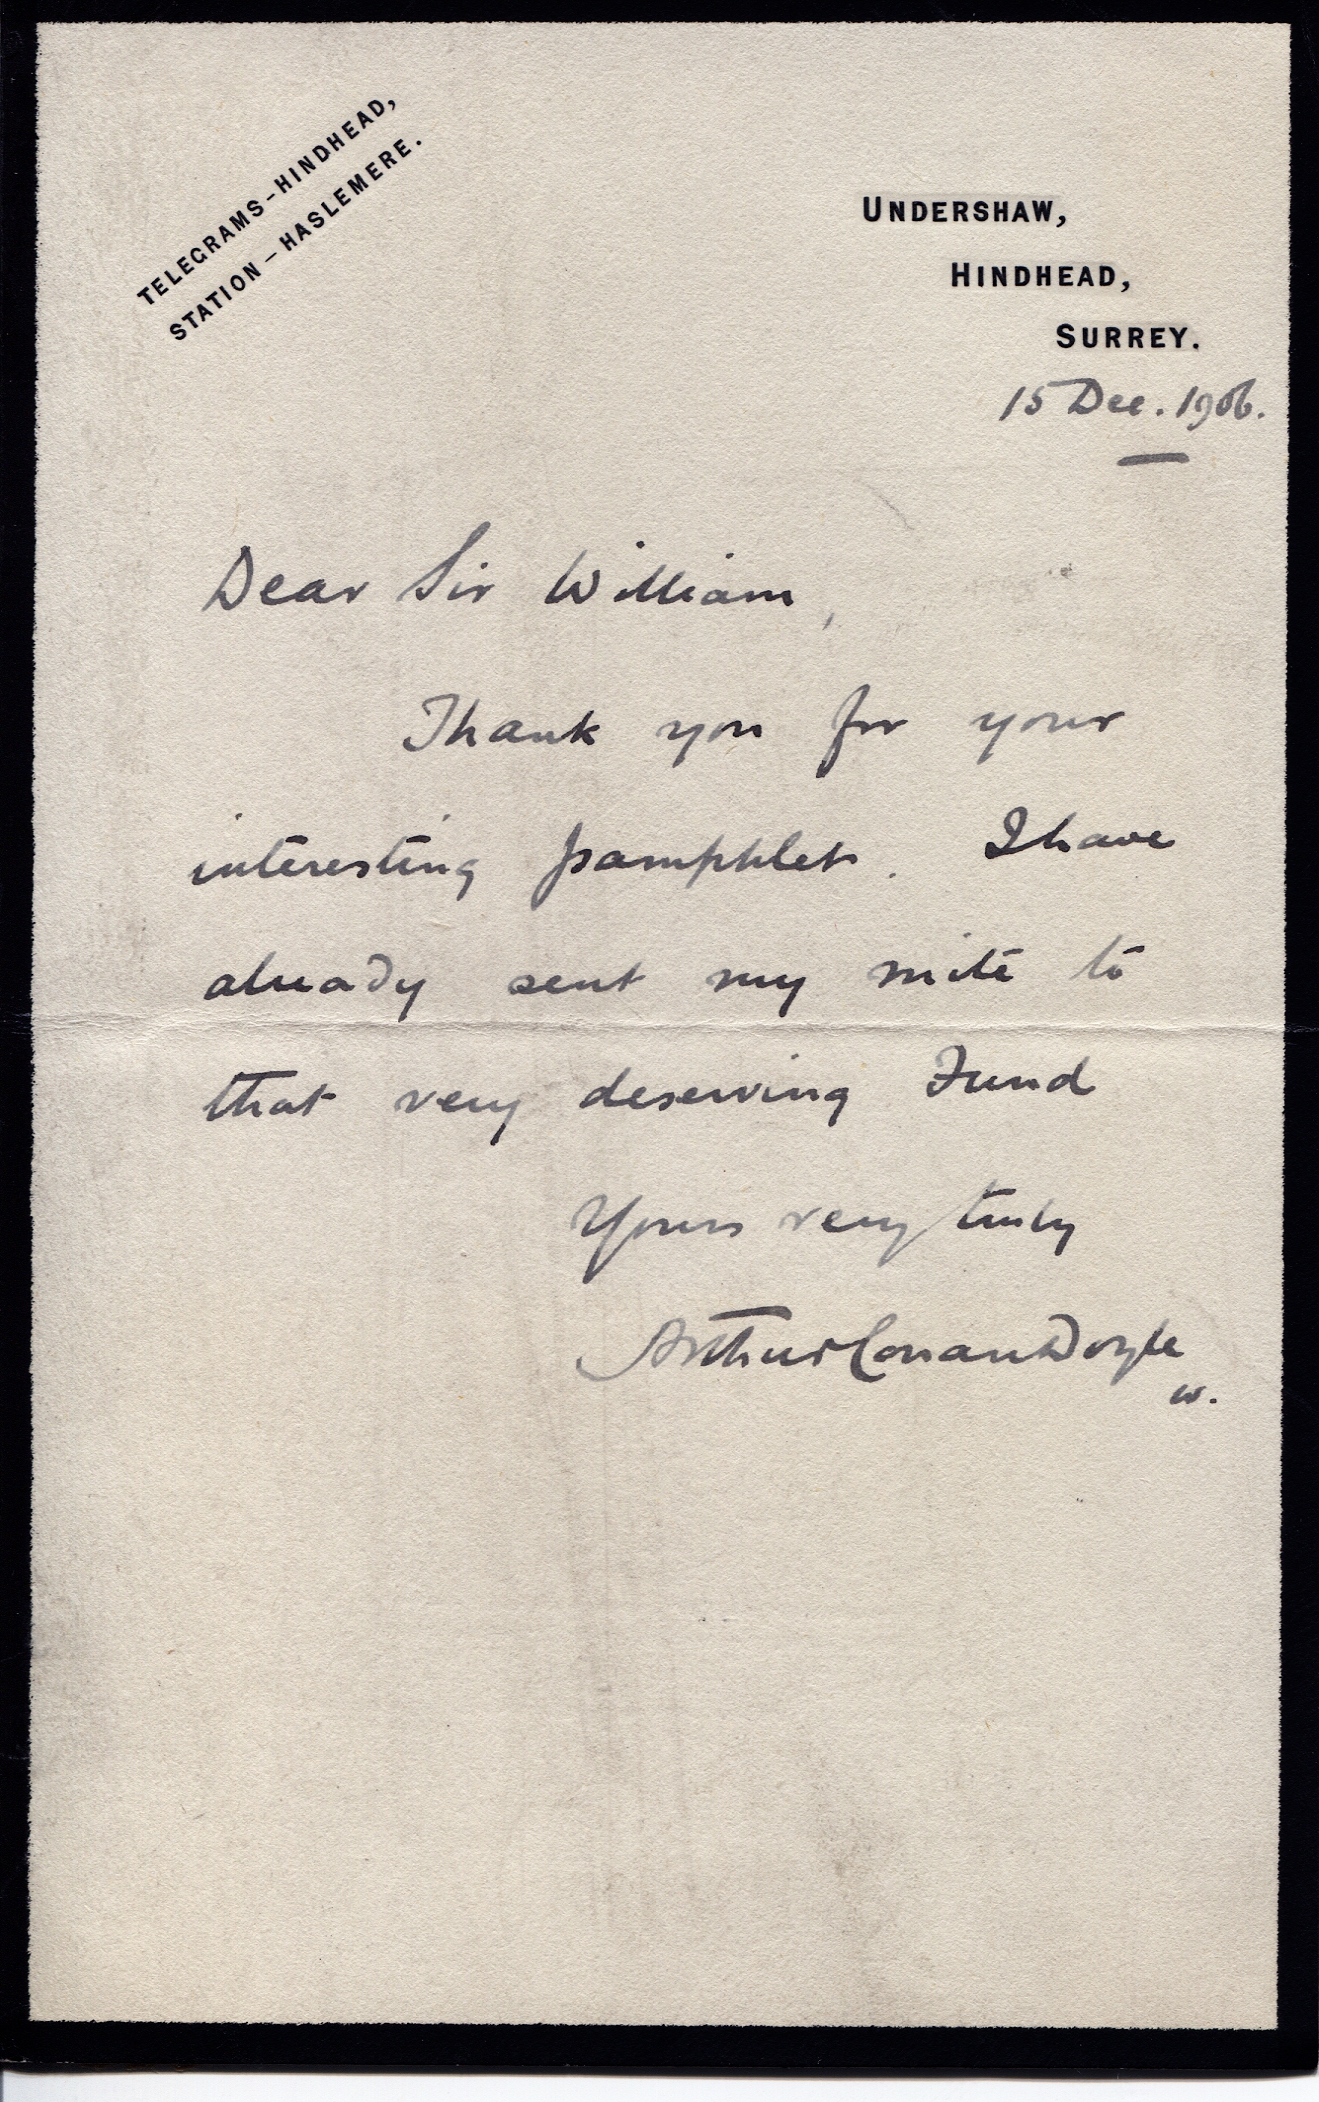 TELEGRAMS-HINDHEAD,
STATION-HASLEMERE.
UNDERSHAW,
HINDHEAD,
SURREY.
15 Dec. 1906.
Dear Sir William,
Thank you for your
interesting pamphlet. I have
already sent my mite to
that very deserving Fund
Yours very truly
Arthur Conan Doyle
w.